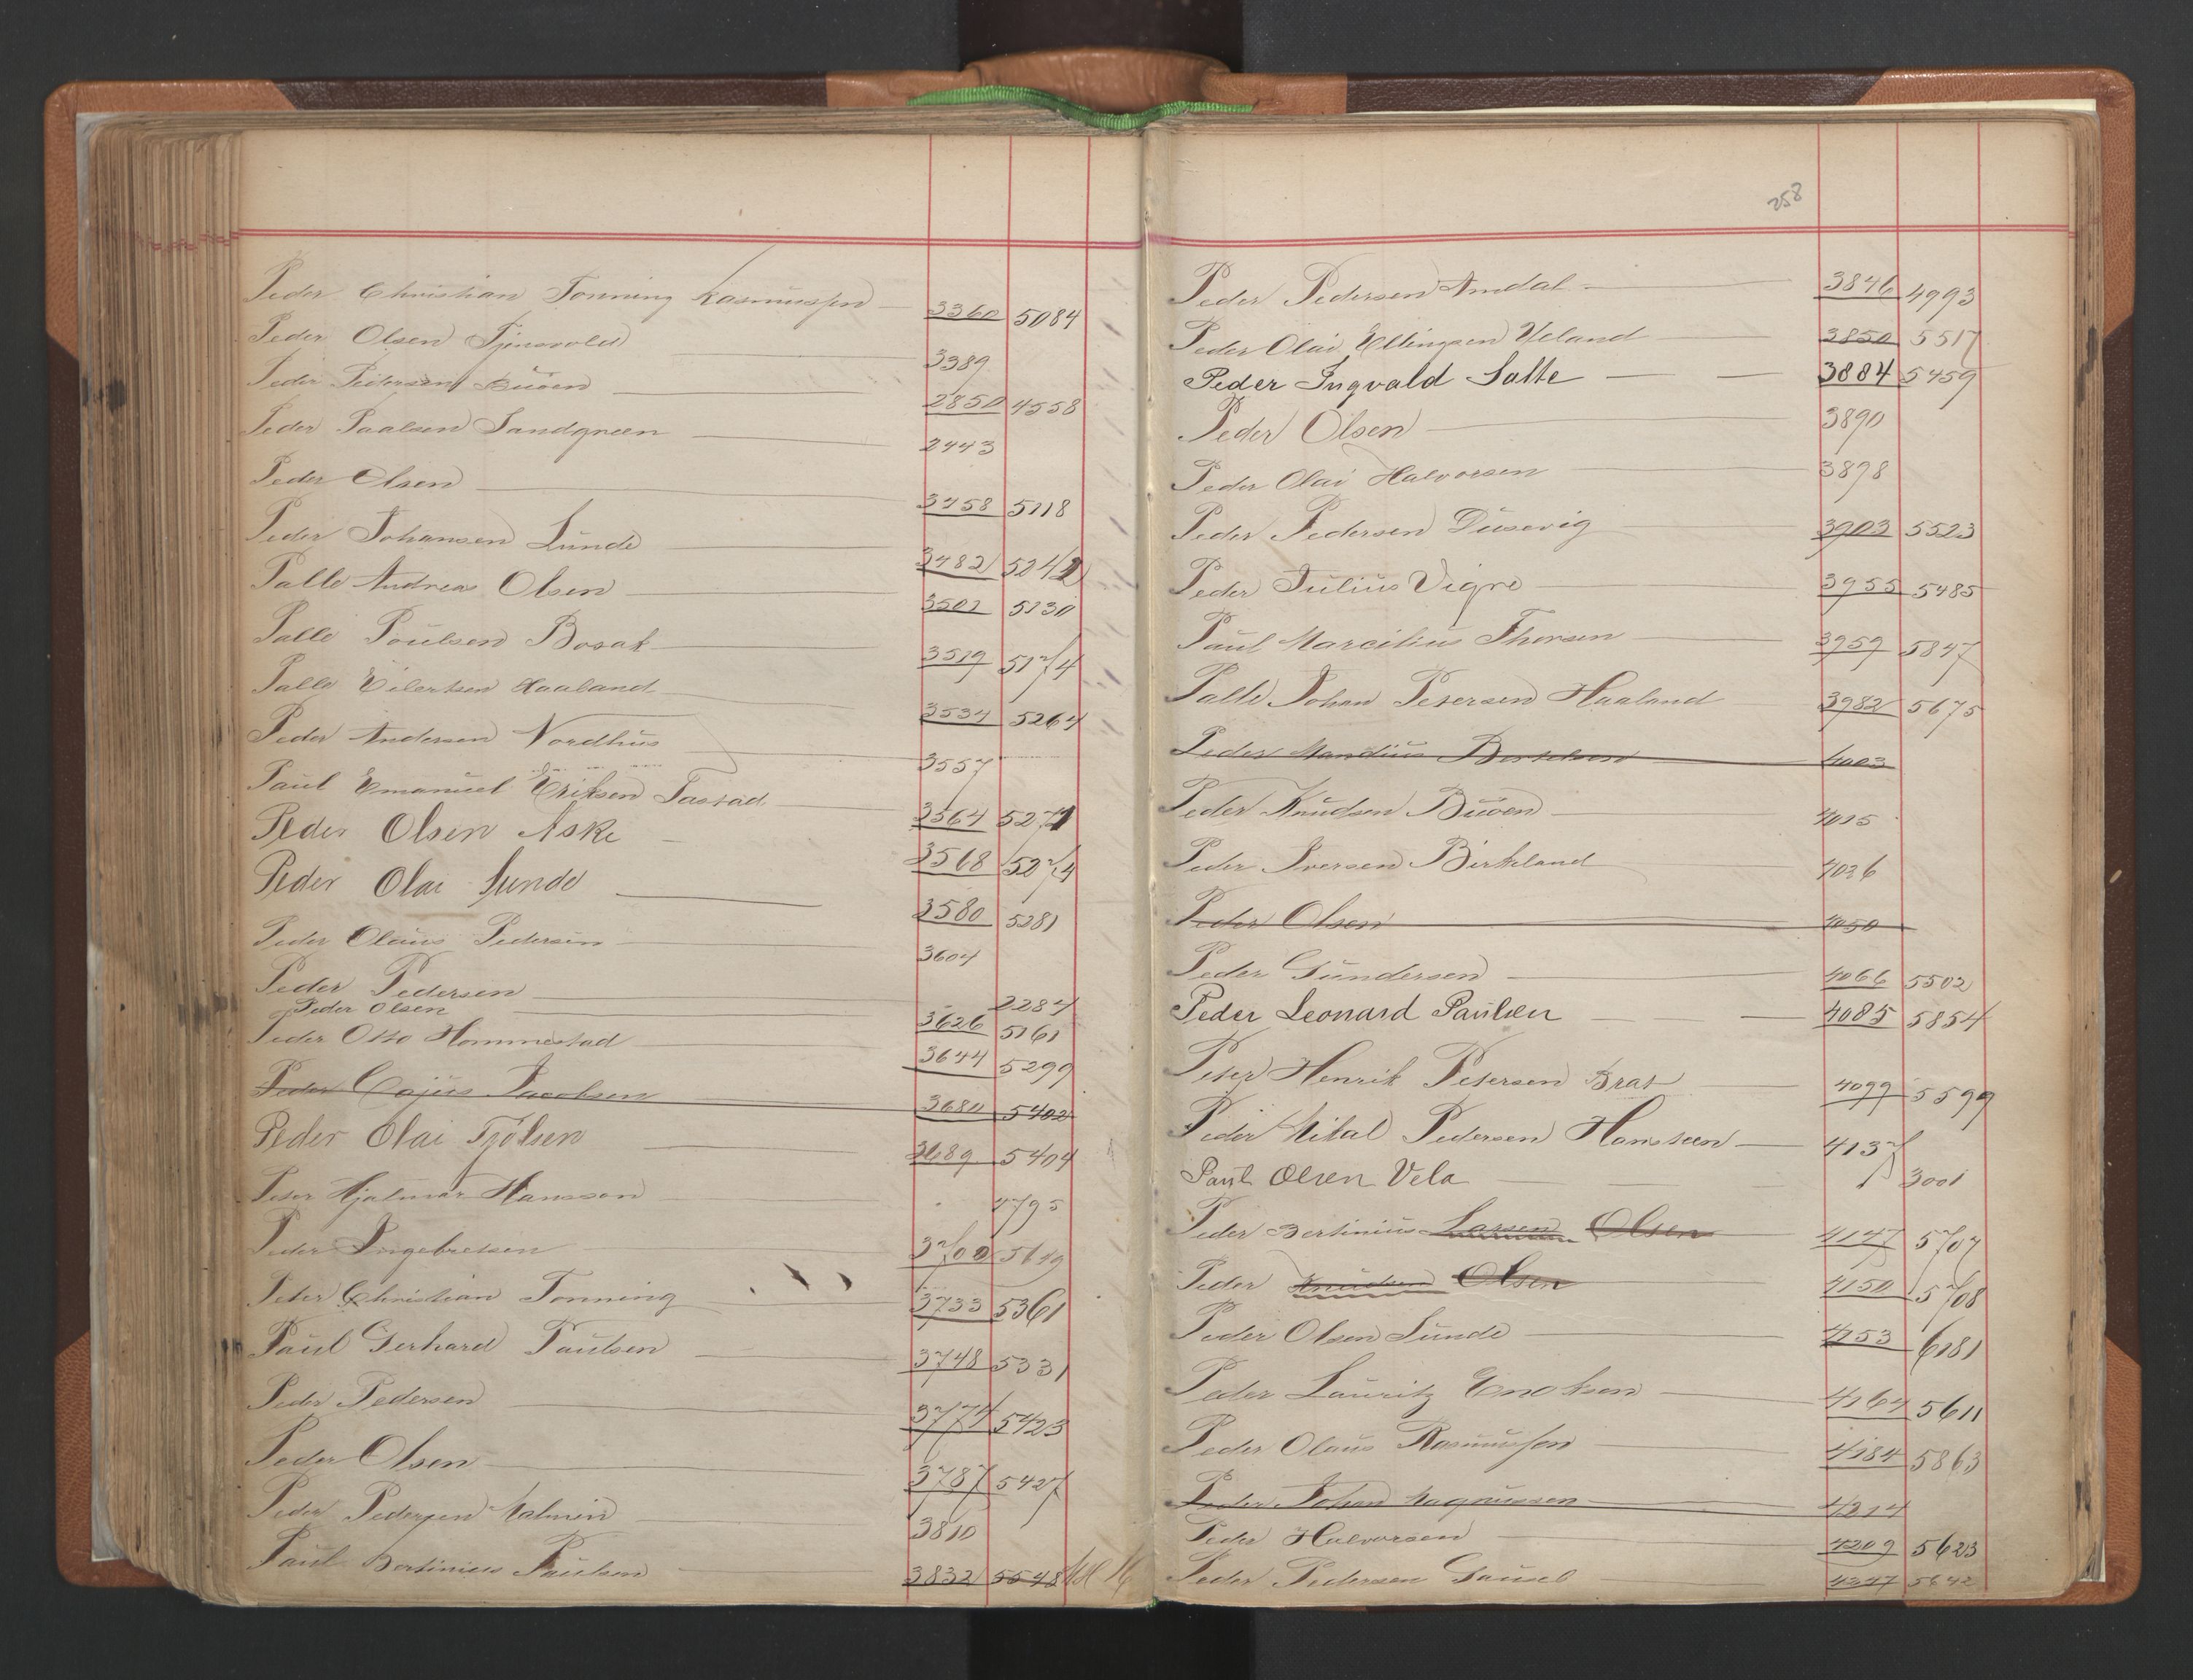 Peder Christian Tonning Rasmussen 3360 5084
Peder Olsen 3389
Peder Pedersen Buøen 2850 4558
Peder Paalsen Sandgreen 2443
Peder Olsen 3458 5118
Peder Johansen Lunde 3482 5242
Palle Andreas Olsen 3501 5130
Palle Poulsen Bosak 3519 5174
Palle Eilertsen Haaland 3534 5264
Peder Andersen Nordhus 3557
Paul Emanuel Eriksen Tastad 3564 5271
Peder Olsen Aske 3568 5274
Peder Olai Sunde 3580 5281
Peder Olaus Pedersen 3604
Peder Pedersen 2284
Peder Olsen 3626 5161
Peder Otto Hommestad 3644 5299
Peder Cajus Jacobsen 3680 5402
Peder Olai Tjölsen 3689 5404
Peter Hjalmar Hanssen 4795
Peder Ingebretsen 3700 5649
Peter Christian Tonning 3733 5361
Paul Gerhard Paulsen 3748 5331
Peder Pedersen 3774 5423
Peder Olsen 3787 5427
Peder Pedersen Malmin 3810
Paul Bertinius Paulsen 3832 5548
258
Peder Pedersen Amdal 3846 4993
Peder Olai Ellingsen Ueland 3850 5517
Peder Ingvald Salte 3884 5459
Peder Olsen 3890
Peder Olai Halvorsen 3898
Peder Pedersen Dusevig 3903 5523
Peder Julius Vigre 3955 5485
Paul Marcilius Thorsen 3959 5847
Palle Johan Petersen Haaland 3982 5675
Peder Mandius Bertelsen 4003
Peder Knudsen Buøen 4015
Peder Iversen Birkeland 4026
Peder Olsen 4050
Peder Gundersen 4066 5502
Peder Leonard Paulsen 4085 5854
Peter Henrik Petersen Brat 4099 5599
Peder Mikal Pedersen Hansteen 4137
Paul Olsen Vela 3001
Peder Bertinius Larsen Olsen 4147 5707
Peder Knudsen Olsen 4150 5708
Peder Olsen Lunde 4153 6181
Peder Lauritz Enoksen 4164 5611
Peder Olaus Rasmussen 4184 5863
Peder Johan Magnussen 4214
Peder Halvorsen 4209 5623
Peder Pedersen Gausel 4247 5642